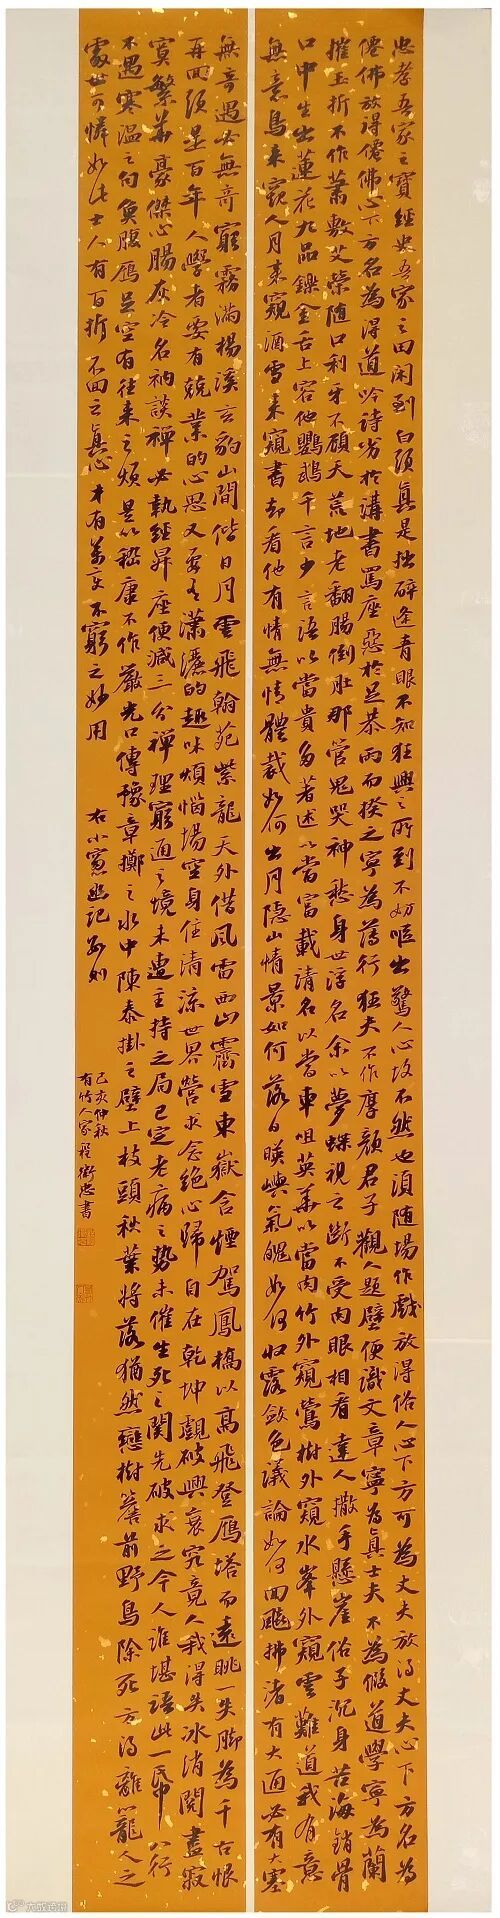 忠孝吾家之寶經史吾家之田閑到白頭真是拙醉逢青眼不知狂興之所到不妨嘔出驚人心故不然也須隨場作戲放得俗人心下方可為丈夫放得丈夫心下方名為
僊佛放得僊佛心下方名為得道吟詩劣於講書罵座惡於足恭兩而揆之寧為薄行狂夫不作厚顏君子觀人題壁便識文章寧為真士夫不為假道學寧為蘭
摧玉折不作蕭敷艾榮隨口利牙不顧天荒地老翻腸倒肚那管鬼哭神愁身世浮名余以夢蝶視之斷不受肉眼相看達人撒手懸崖俗子沉身苦海銷骨
口中生出蓮花九品鑠金舌上容他鸚鵡千言少言語以當貴多著述以當富載清名以當車咀英華以當肉竹外窺鶯樹外窺水峯外窺雲難道我有意
無意鳥來窺人月來窺酒雪來窺書却看他有情無情體裁如何出月隱山情景如何落日映嶼氣魄如何收露斂色議論如何回飈拂渚有大通必有大塞
無奇遇必無奇窮霧滿楊溪玄豹山間偕日月雲飛翰苑紫龍天外借風雷西山霽雪東嶽含煙駕鳳橋以高飛登鴈塔而遠眺一失脚為千古恨
再回頭是百年人學者要有兢業的心思又要有瀟灑的趣味煩惱場空身住清涼世界營求念絕心歸自在乾坤覷破興衰究竟人我得失冰消閱盡寂
寞繁華豪傑心腸灰冷名衲談禪必執經昇座便減三分禪理窮通之境未遭主持之局已定老病之勢未催生死之關先破求之今人誰堪語此一紙八行
不遇寒溫之句魚腹鴈足空有往來之煩是以嵇康不作嚴光口傳豫章擲之水中陳泰掛之壁上枝頭秋葉將落猶然戀樹簷前野鳥除死方得離籠人之
處世可憐如此士人有百折不回之真心才有萬變不窮之妙用 右小窗幽記數則
己亥仲秋
有竹人家程衛忠書